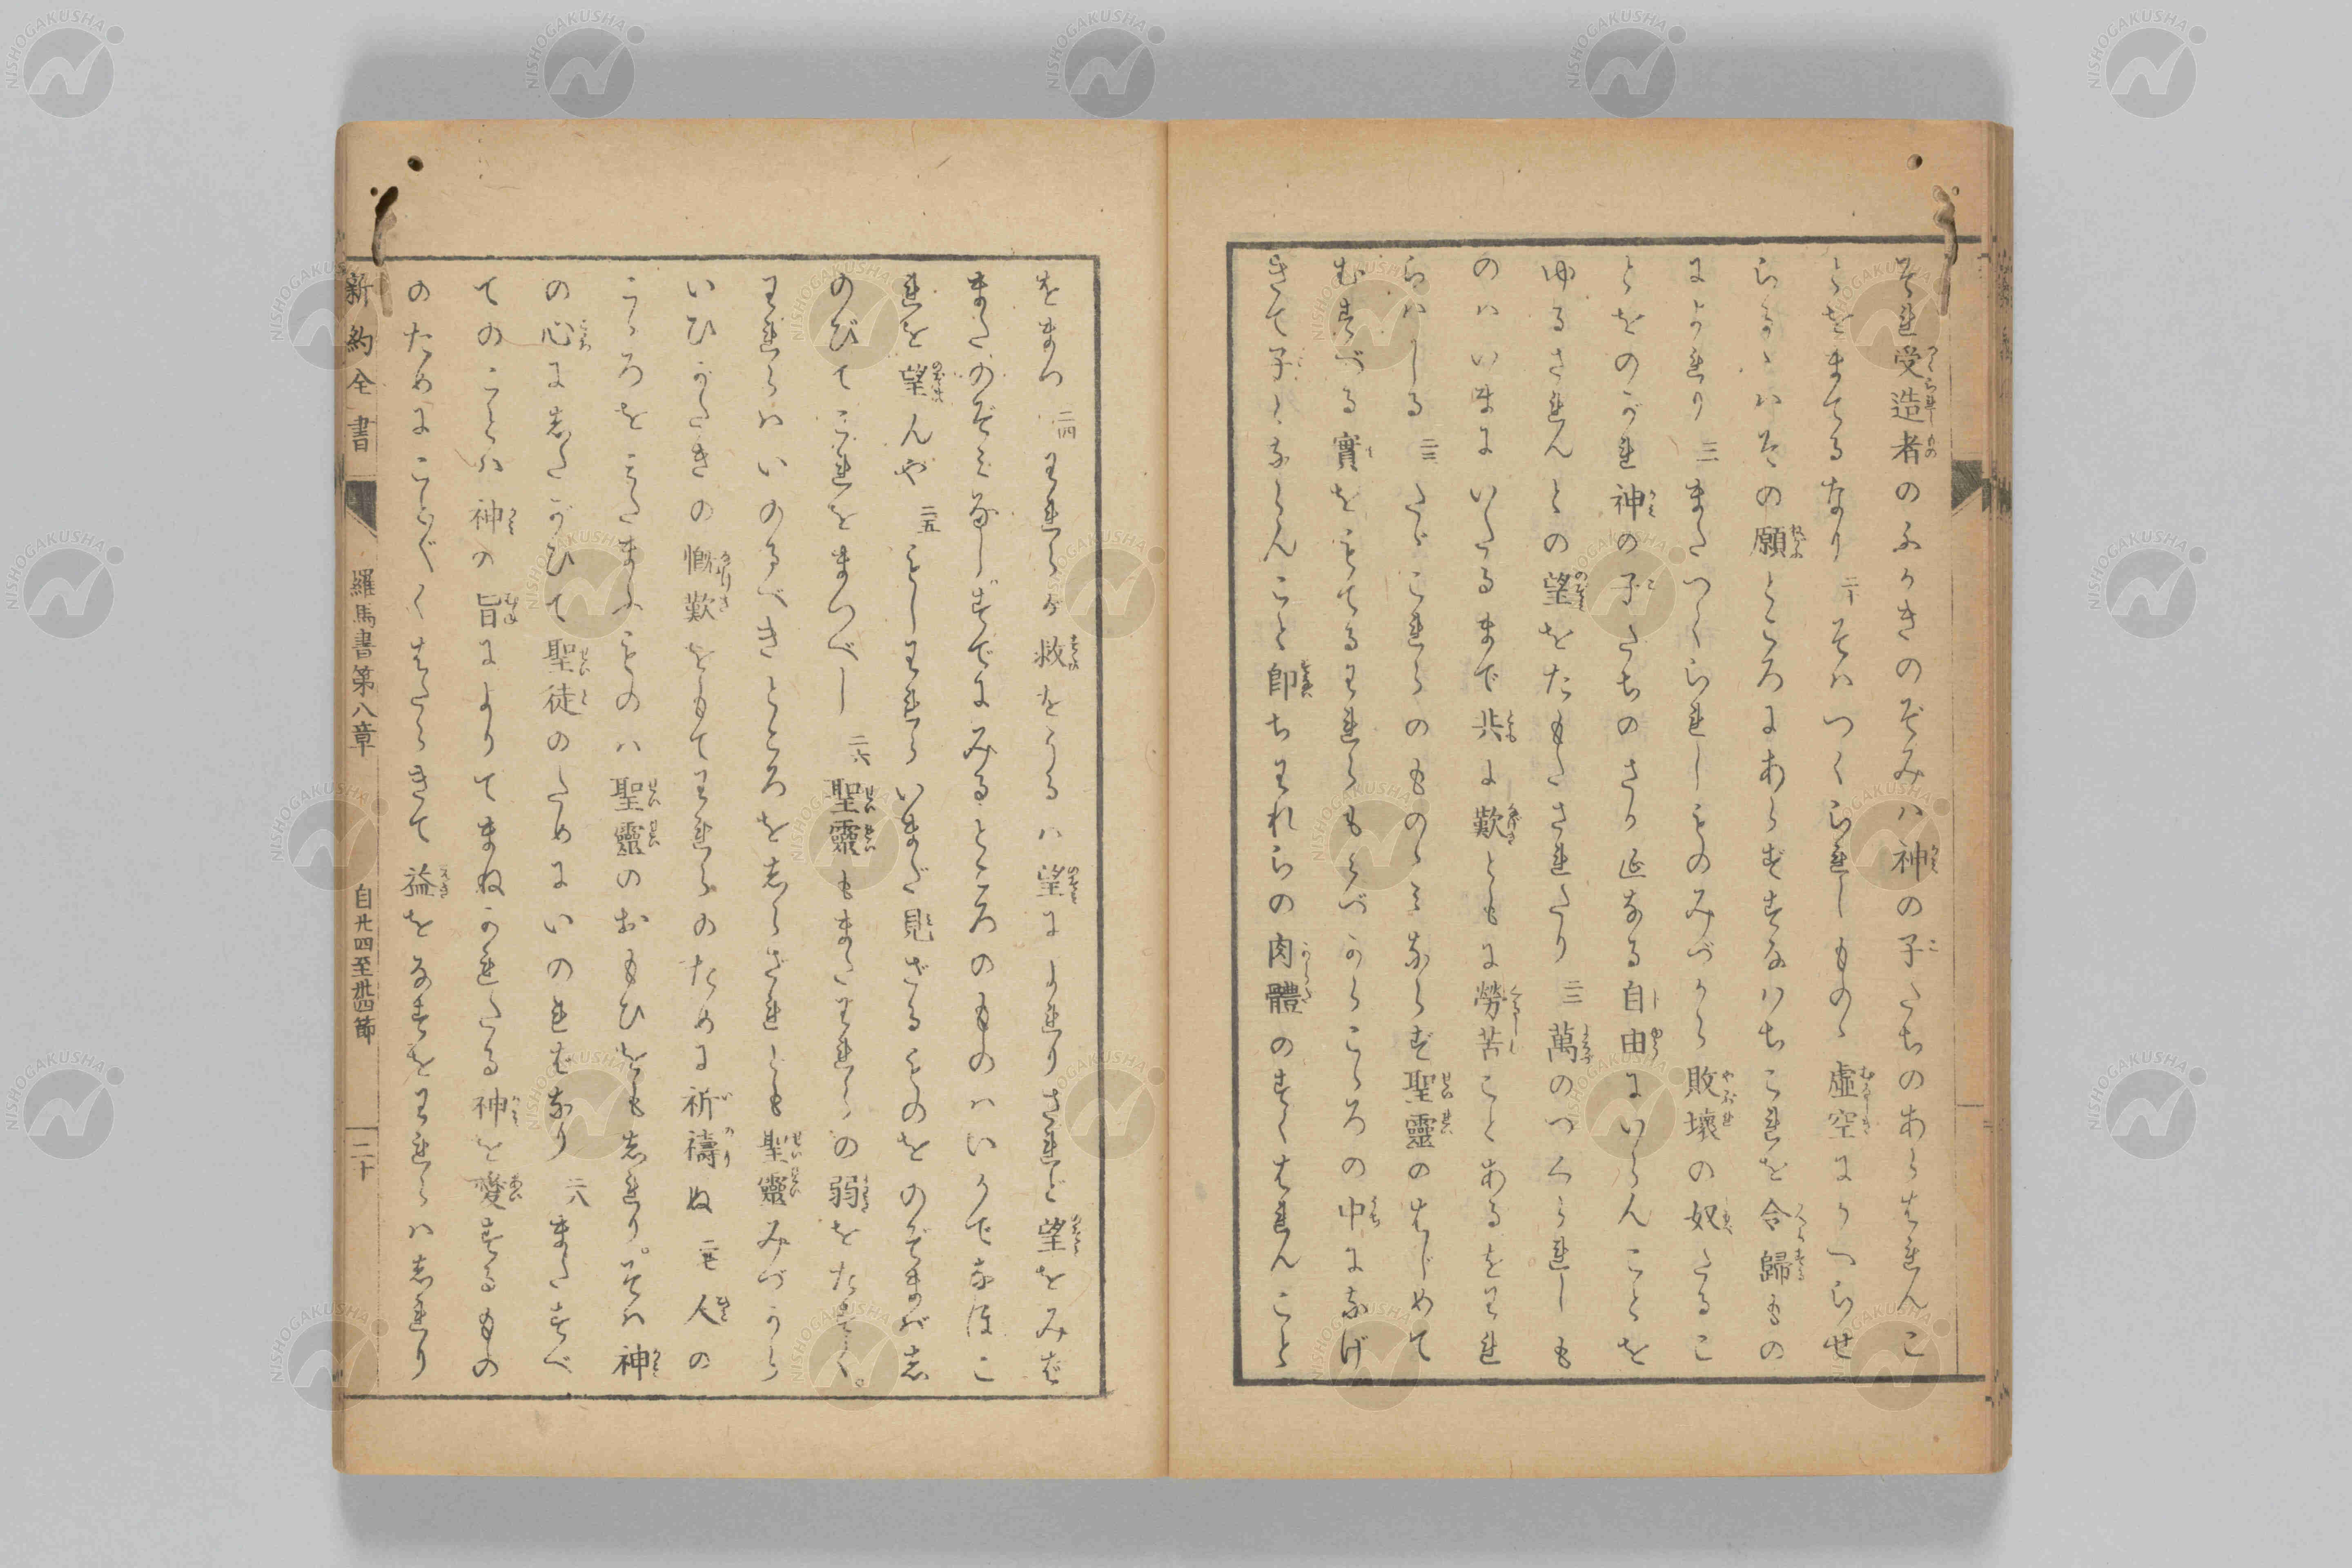 それ受造者のふかきのぞみハ神の子たちのあらはれんこ
とをまてるなり 二十 そハつくられしものゝ虚空にかへらせ
らるゝハその願ところにあらずすなハちこれを令歸もの
によれり 二一 またつくられしものみづから敗壞の奴たるこ
とをのがれ神の子たちのさかえなる自由にいらんことを
ゆるされんとの望をたもたされたり 二二 萬のつくられしも
のハいまにいたるまで共に歎ともに勞苦ことあるをわれ
らハしる 二三 たゞこれらのものゝミならず聖靈のはじめて
むすべる實をもてるわれらもみづからこゝろの中になげ
きて子とならんこと即ちわれらの肉體のすくはれんこと
をまつ 二四 われらが救をうるハ望によれりされど望をみば
またのぞミなしすでにみるところのものハいかでなほこ
れを望んや 二五 もしわれらいまだ見ざるものをのぞまば志
のびてこれをまつべし 二六 聖靈もまたわれらの弱をたすく。
われらハいのるべきところを志らざれども聖靈みづから
いひがたきの慨歎をもてわれらのために祈禱ぬ 二七 人の
こゝろをみたまふものハ聖靈のおもひをも志れり。そハ神
の心に志たがひて聖徒のためにいのればなり 二八 またすべ
てのことハ神の旨によりてまねかれたる神を愛するもの
のためにことごとくはたらきて益をなすをわれらハ志れり
新約全書 羅馬書第八章 自廿四至卅四節 二十
NISHOGAKUSHA